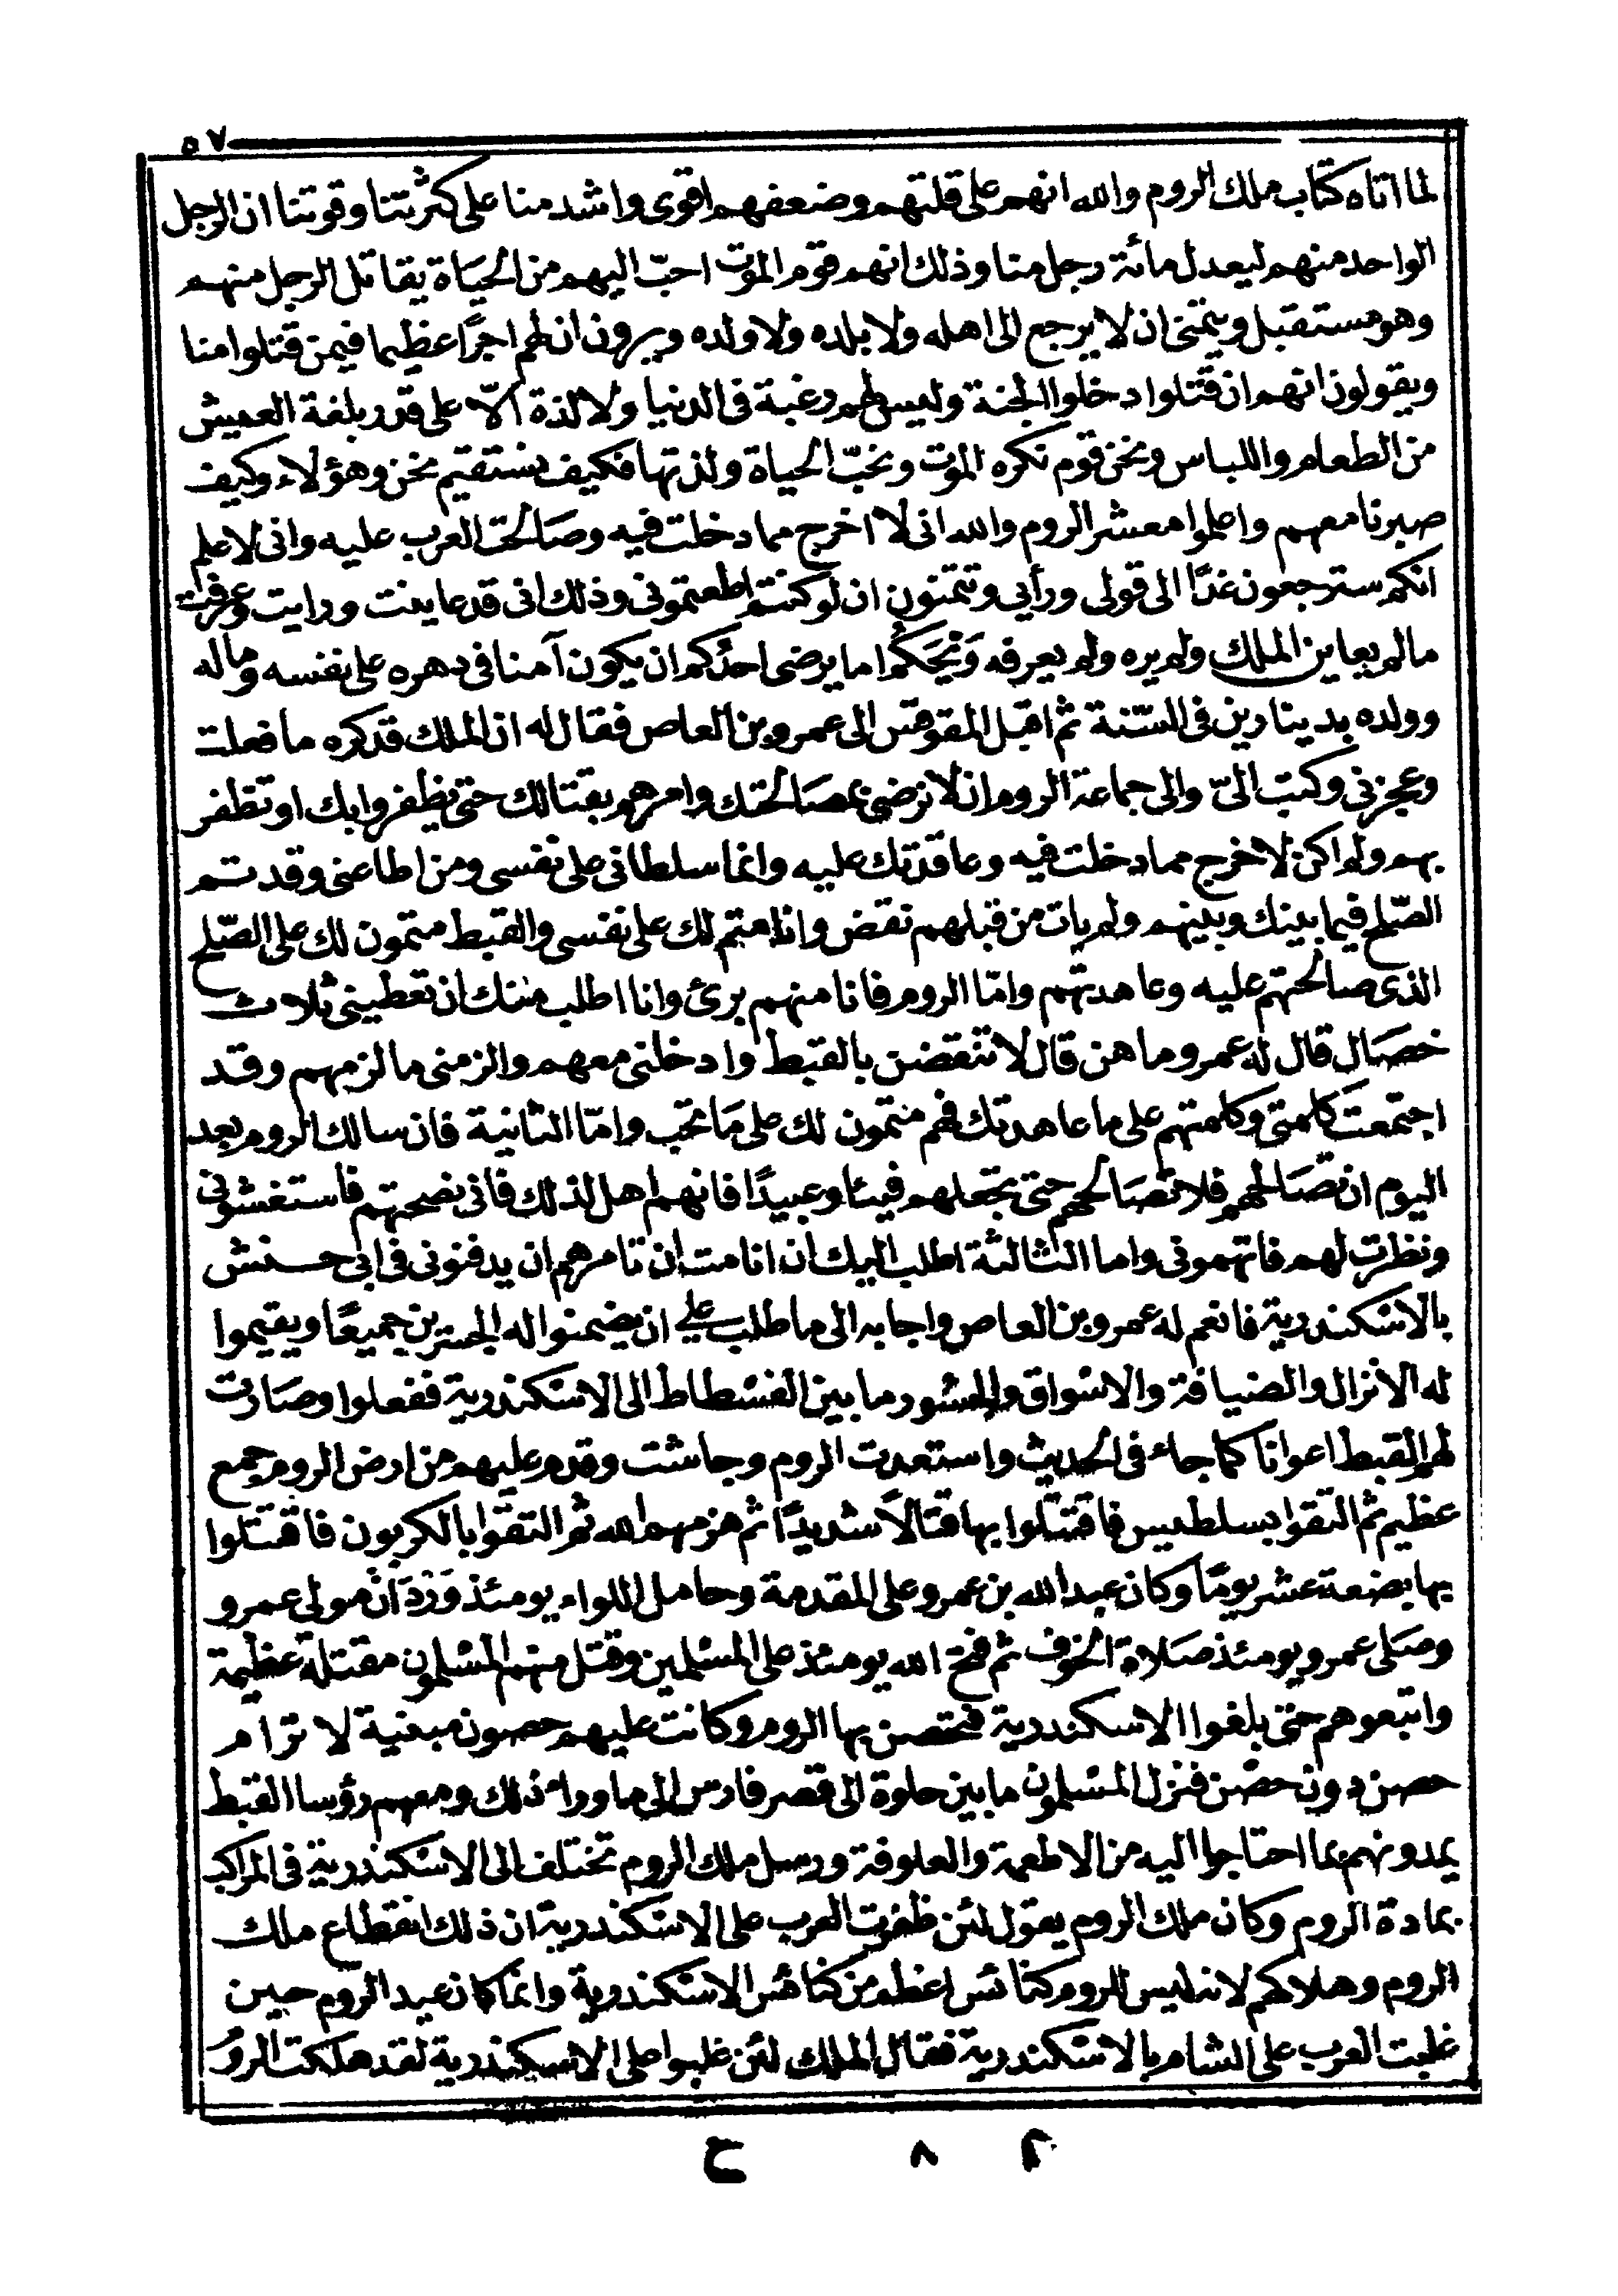 ٥٧
لما اتاه كتاب ملك الروم والله انهم على قلتهم وضعفهم اقوى واشد منا على كثرتنا وقوتنا ان الرجل
الواحد منهم ليعدل مائة رجل منا وذلك انهم قوم الموت احبّ اليهم من الحياة يقاتل الرجل منهم
وهو مستقبل ويتمنى ان لا يرجع الى اهله ولا بلده ولا ولده ويرون ان لهم اجرًا عظيما فيمن قتلوا منا
ويقولون انهم ان قتلوا دخلوا الجنة وليس لهم رغبة فى الدنيا ولا لذة الّا على قدر بلغة العيش
من الطعام واللباس ونحن قوم نكره الموت ونحبّ الحياة ولذتها فكيف نستقيم نحن وهؤلاء وكيف
صبرنا معهم واعلموا معشر الروم والله انى لا اخرج مما دخلت فيه وصالحت العرب عليه وانى لاعلم
انكم سترجعون غدًا الى قولى ورأيى وتتمنون ان لو كنتم اطعتمونى وذلك انى قد عاينت ورايت وعرفت
ما لم يعاين الملك ولم يره ولم يعرفه وَيْحَكُم اما يرضى احدُكم ان يكون آمنا فى دهره على نفسه وماله
وولده بدينارين فى السّنة ثم اقبل المقوقس الى عمرو بن العاص فقال له ان الملك قد كره ما فعلت
وعجزنى وكتب الىّ والى جماعة الروم ان لا نرضى بمصالحتك وامرهم بقتالك حتى يظفروا بك او تظفر
بهم ولم اكن لاخرج مما دخلت فيه وعاقدتك عليه وانما سلطانى على نفسى ومن اطاعنى وقد تم
الصّلح فيما بينك وبينهم ولم يات من قبلهم نقض وانا متم لك على نفسى والقبط متمون لك على الصّلح
الذى صالحتهم عليه وعاهدتهم وامّا الروم فانا منهم برئ وانا اطلب منك ان تعطينى ثلاث
خصال قال له عمرو ما هن قال لا تنقضن بالقبط وادخلنى معهم والزمنى ما لزمهم وقد
اجتمعت كلمتى وكلمتهم على ما عاهدتك فهم متمون لك على مَا تحب وامّا الثانية فان سالك الروم بعد
اليوم ان تصَالحهم فلا تصَالحهم حتى تجعلهم فيئا وعبيدًا فانهم اهل لذلك فانى نصحتهم فاستغشونى
ونظرت لهم فاتهمونى واما الثالثة اطلب اليك ان انا مت ان تامرهم ان يدفنونى فى ابى حنش
بالاسكندرية فانعم له عمرو بن العاص واجابه الى ما طلب على ان يضمنوا له الجسرين جميعًا ويقيموا
له الانزال والضيافة والاسواق والجسور ما بين الفسطاط الى الاسكندرية ففعلوا وصَارت
لهم القبط اعوانا كما جاء فى الحديث واستعدت الروم وجاشت وقدم عليهم من ارض الروم جمع
عظيم ثم التقوا بسلطيس فاقتتلوا بها قتالًا شديدًا ثم هزمهم الله ثم التقوا بالكريون فاقتتلوا
بها بضعة عشر يومًا وكان عبد الله بن عمرو على المقدمة وحامل اللواء يومئذ وَرْدَانُ مولى عمرو
وصَلى عمرو يومئذ صَلاة الخوف ثم فتح الله يومئذ على المسْلمين وقتل منهم المسْلمون مقتلة عظيمة
واتبعوهم حتى بلغوا الاسكندرية فتحصن بها الروم وكانت عليهم حصون مبنية لا ترام
حصن دون حصْن فنزل المسْلمون ما بين حلوة الى قصر فارس الى ما وراء ذلك ومعهم رؤسا القبط
يمدونهم بما احتاجوا اليه من الاطعمة والعلوفة ورسل ملك الروم تختلف الى الاسكندرية فى المراكب
بمادة الروم وكان ملك الروم يقول لئن ظفرت العرب على الاسكندرية ان ذلك انقطاع ملك
الروم وهلاكهم لانه ليس للروم كنائس اعظم من كنائس الاسكندرية وانما كان عيد الروم حين
غلبت العرب على الشام بالاسكندرية فقال الملك لئن غلبوا على الاسكندرية لقد هلكت الروُ
٨
ح